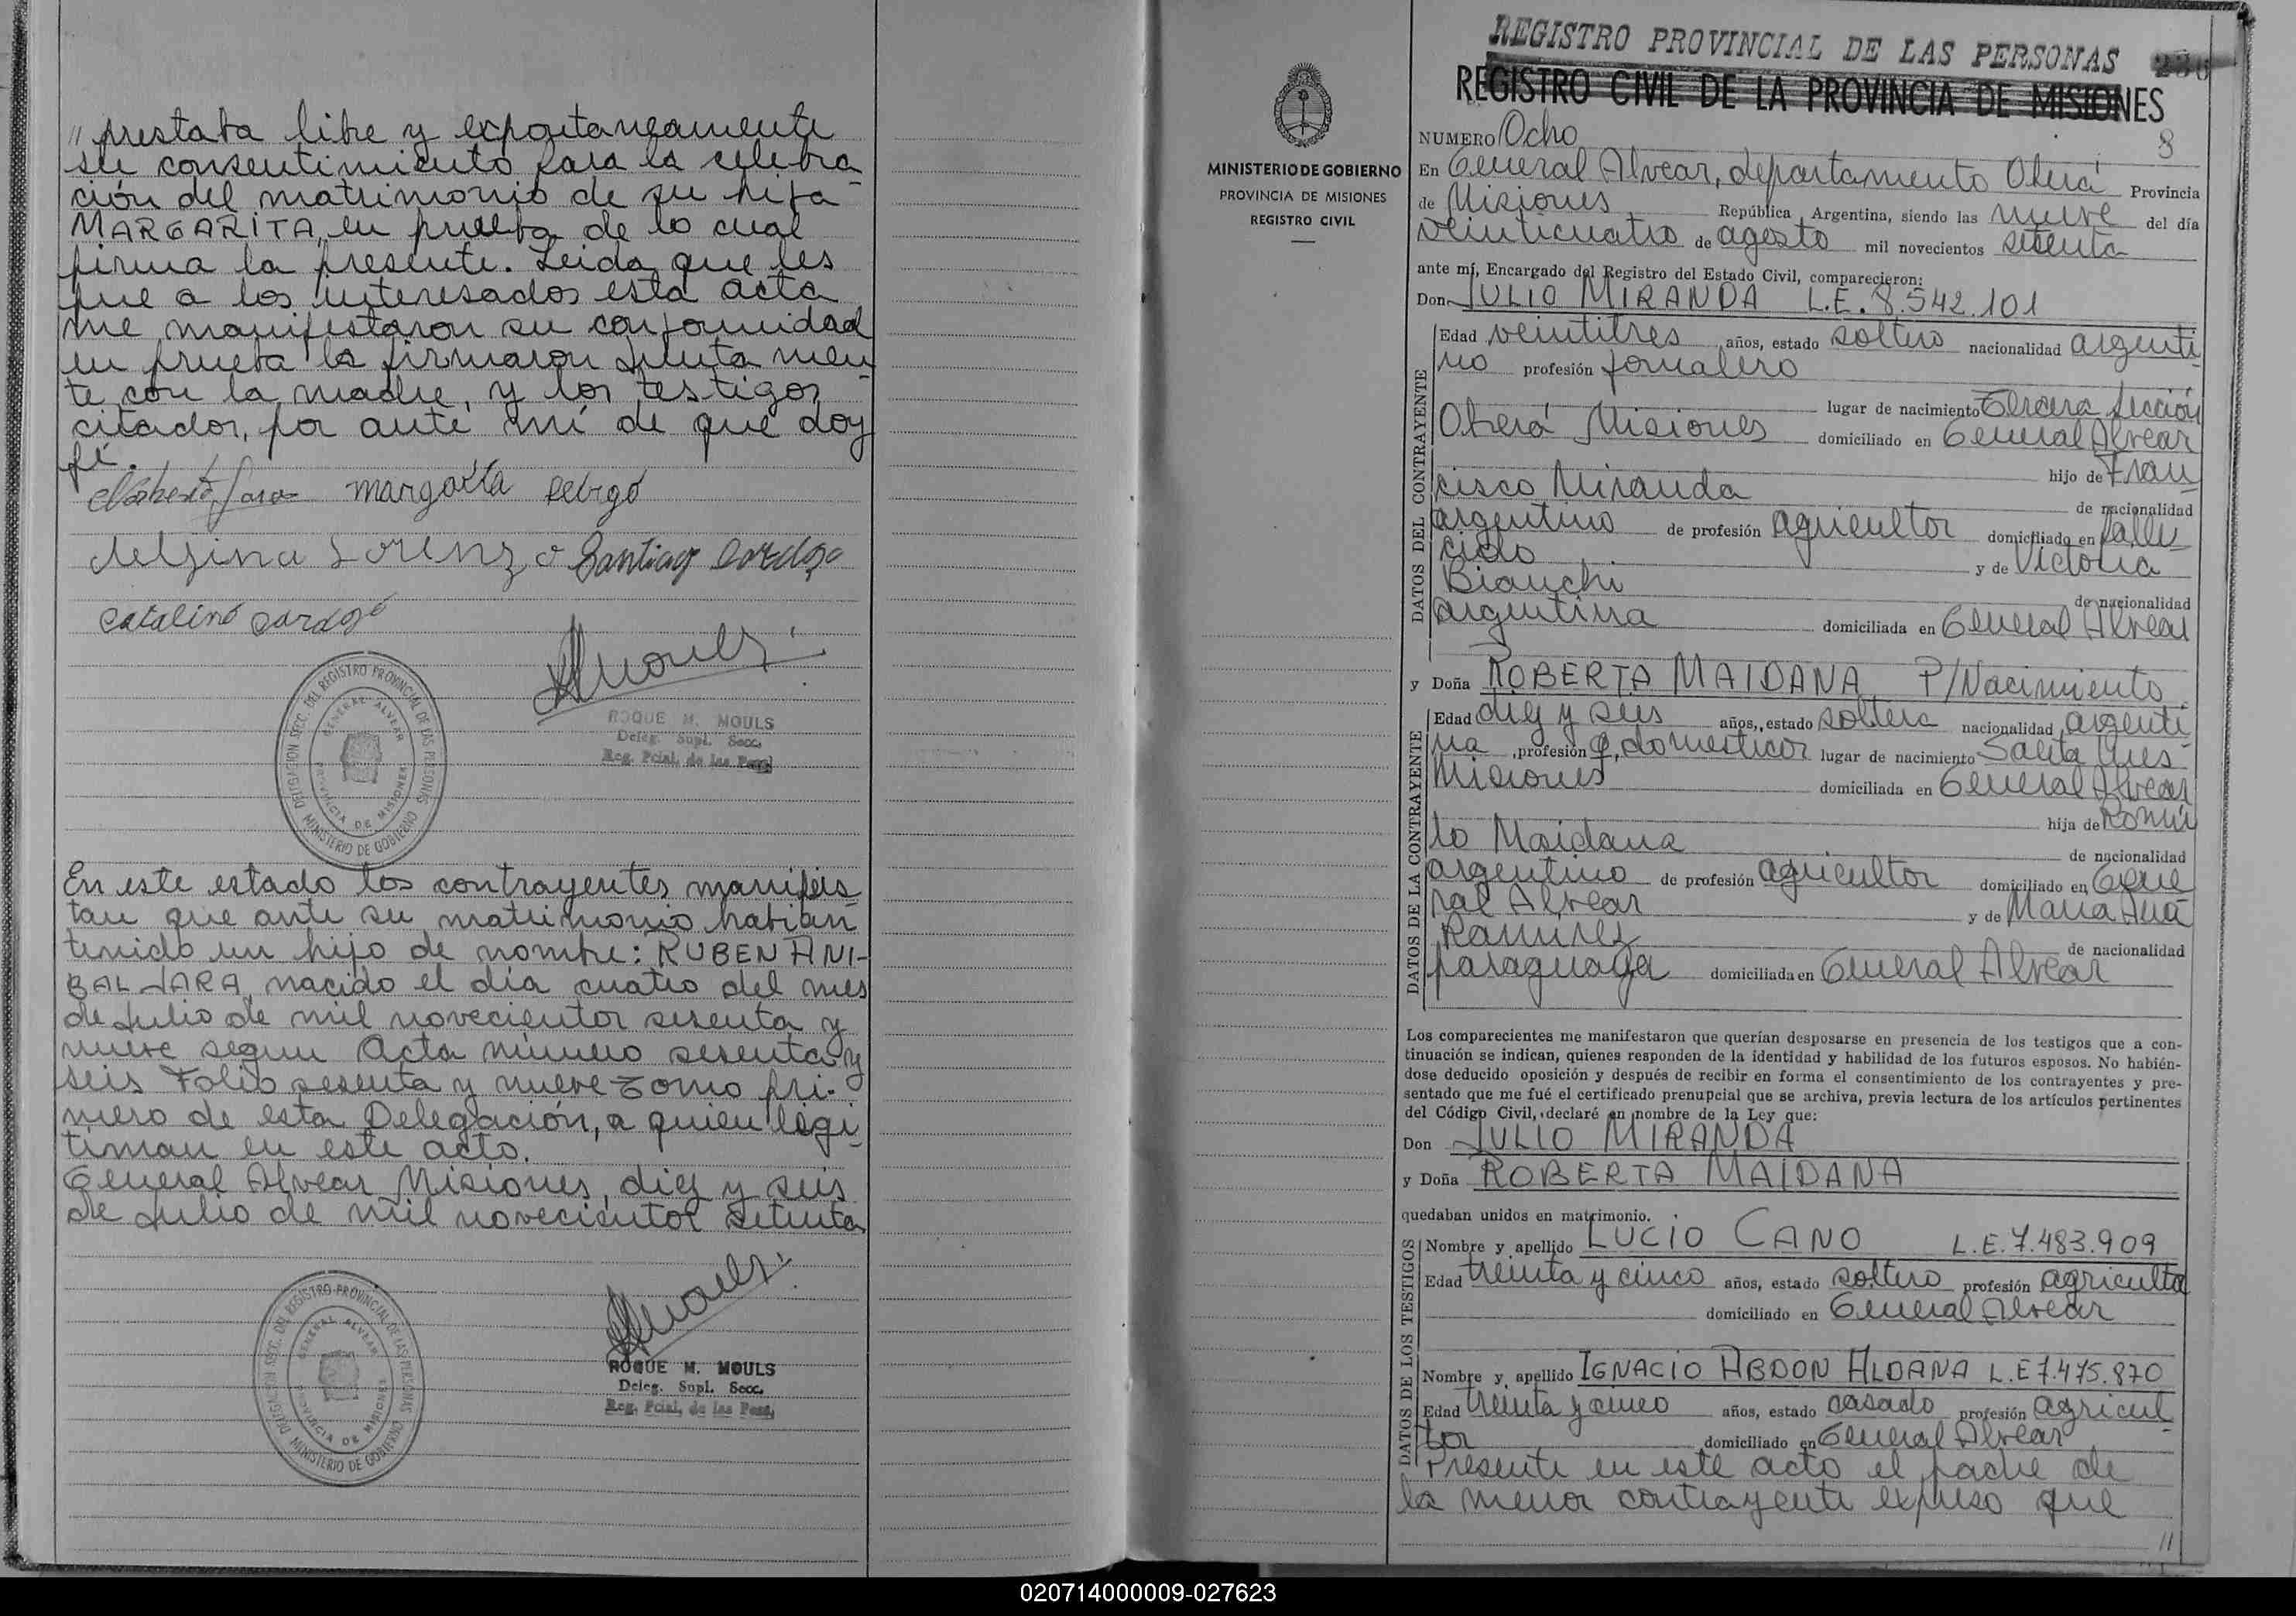 // prestaba libre y expontaneamente
su consentimiento para la celebra
ción del matrimonio de su hija
MARGARITA, en prueba de lo cual
firma la presente. Leida que les
fue a los interesados esta acta
me manifestaron su conformidad
en prueba la firmaron junta men
te con la madre, y los testigos
citados, por ante mí de que doy
fé.
margarita
Lorenzo Santiag
Catalino
DELEGACION SECC. DEL REGISTRO PROVINCIAL DE LAS PERSONAS
GENERAL ALVEAR
PROVINCIA DE MISIONES
MINISTERIO DE GOBIERNO
ROQUE M. MOULS
Deleg. Supl. Secc.
Reg. Pcial. de las Pers.
En este estado los contrayentes manifies
tan que ante su matrimonio habian
tenido un hijo de nombre: RUBEN ANI-
BAL JARA, nacido el día cuatro del mes
de Julio de mil novecientos sesenta y
nueve segun Acta número sesenta y
seis Folio sesenta y nueve Tomo pri-
mero de esta Delegación, a quien legi
timan en este acto.
General Alvear Misiones, diez y seis
de Julio de mil novecientos setenta
DELEGACION SECC. DEL REGISTRO PROVINCIAL DE LAS PERSONAS
GENERAL ALVEAR
PROVINCIA DE MISIONES
MINISTERIO DE GOBIERNO
ROQUE M. MOULS
Deleg. Supl. Secc.
Reg. Pcial. de las Pers.
MINISTERIO DE GOBIERNO
PROVINCIA DE MISIONES
REGISTRO CIVIL
REGISTRO PROVINCIAL DE LAS PERSONAS
REGISTRO CIVIL DE LA PROVINCIA DE MISIONES
NUMERO Ocho 8
En General Alvear, departamento Oberá Provincia
de Misiones República Argentina, siendo las nueve del día
veinticuatro de agosto mil novecientos setenta
ante mí, Encargado del Registro del Estado Civil, comparecieron:
Don JULIO MIRANDA L.E. 8.542.101
DATOS DEL CONTRAYENTE
Edad veintitres años, estado soltero nacionalidad argenti
no profesión jornalero
lugar de nacimiento Tercera Sección
Oberá Misiones domiciliado en General Alvear
hijo de Fran
cisco Miranda
de nacionalidad
argentino de profesión agricultor domiciliado en falle
cido y de Victoria
Bianchi
de nacionalidad
argentina domiciliada en General Alvear
y Doña ROBERTA MAIDANA P/Nacimiento
DATOS DE LA CONTRAYENTE
Edad diez y seis años, estado soltera nacionalidad argenti
na profesión q. domesticos lugar de nacimiento Santa Ines-
Misiones domiciliada en General Alvear
hija de Romu
lo Maidana
de nacionalidad
argentino de profesión agricultor domiciliado en Gene
ral Alvear y de Maria Ana
Ramirez
de nacionalidad
paraguaya domiciliada en General Alvear
Los comparecientes me manifestaron que querían desposarse en presencia de los testigos que a con-
tinuación se indican, quienes responden de la identidad y habilidad de los futuros esposos. No habién-
dose deducido oposición y después de recibir en forma el consentimiento de los contrayentes y pre-
sentado que me fué el certificado prenupcial que se archiva, previa lectura de los artículos pertinentes
del Código Civil, declaré en nombre de la Ley que:
Don JULIO MIRANDA
y Doña ROBERTA MAIDANA
quedaban unidos en matrimonio.
DATOS DE LOS TESTIGOS
Nombre y apellido LUCIO CANO L.E. 7.483.909
Edad treinta y cinco años, estado soltero profesión agricultor
domiciliado en General Alvear
Nombre y apellido IGNACIO ABDON ALDANA L.E 7.475.870
Edad treinta y cinco años, estado casado profesión agricul
tor domiciliado en General Alvear
Presente en este acto el padre de
la menor contrayente expuso que
//
020714000009-027623